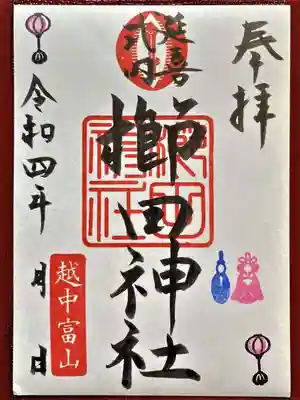 奉拝
延喜
式内
櫛田神社
越中富山
令和四年 月 日